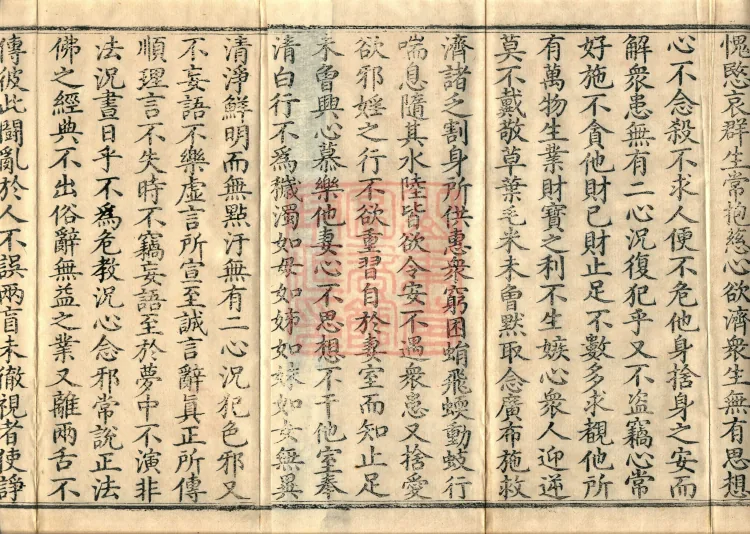 愧愍哀群生常抱慈心欲濟衆生無有思想
心不念殺不求人便不危他身捨身之安而
解衆患無有二心況復犯乎又不盗竊心常
好施不貪他財己財止足不數多求覩他所
有萬物生業財寶之利不生嫉心衆人迎逆
莫不戴敬草葉毛米未曾默取念廣布施救
濟諸乏割身所供惠衆窮困蜎飛蝡動蚑行
喘息隨其水陸皆欲令安不遇衆患又捨愛
欲邪婬之行不欲重習自於妻室而知止足
未曾興心慕樂他妻心不思想不干他室奉
清白行不爲穢濁如母如姊如妹如女無異
清淨鮮明而無點汙無有二心況犯色邪又
不妄語不樂虛言所宣至誠言辭眞正所傳
順理言不失時不竊妄語至於夢中不演非
法況晝日乎不爲危教況心念邪常說正法
佛之經典不出俗辭無益之業又離兩舌不
傳彼此鬪亂於人不誤兩盲未徹視者使諍